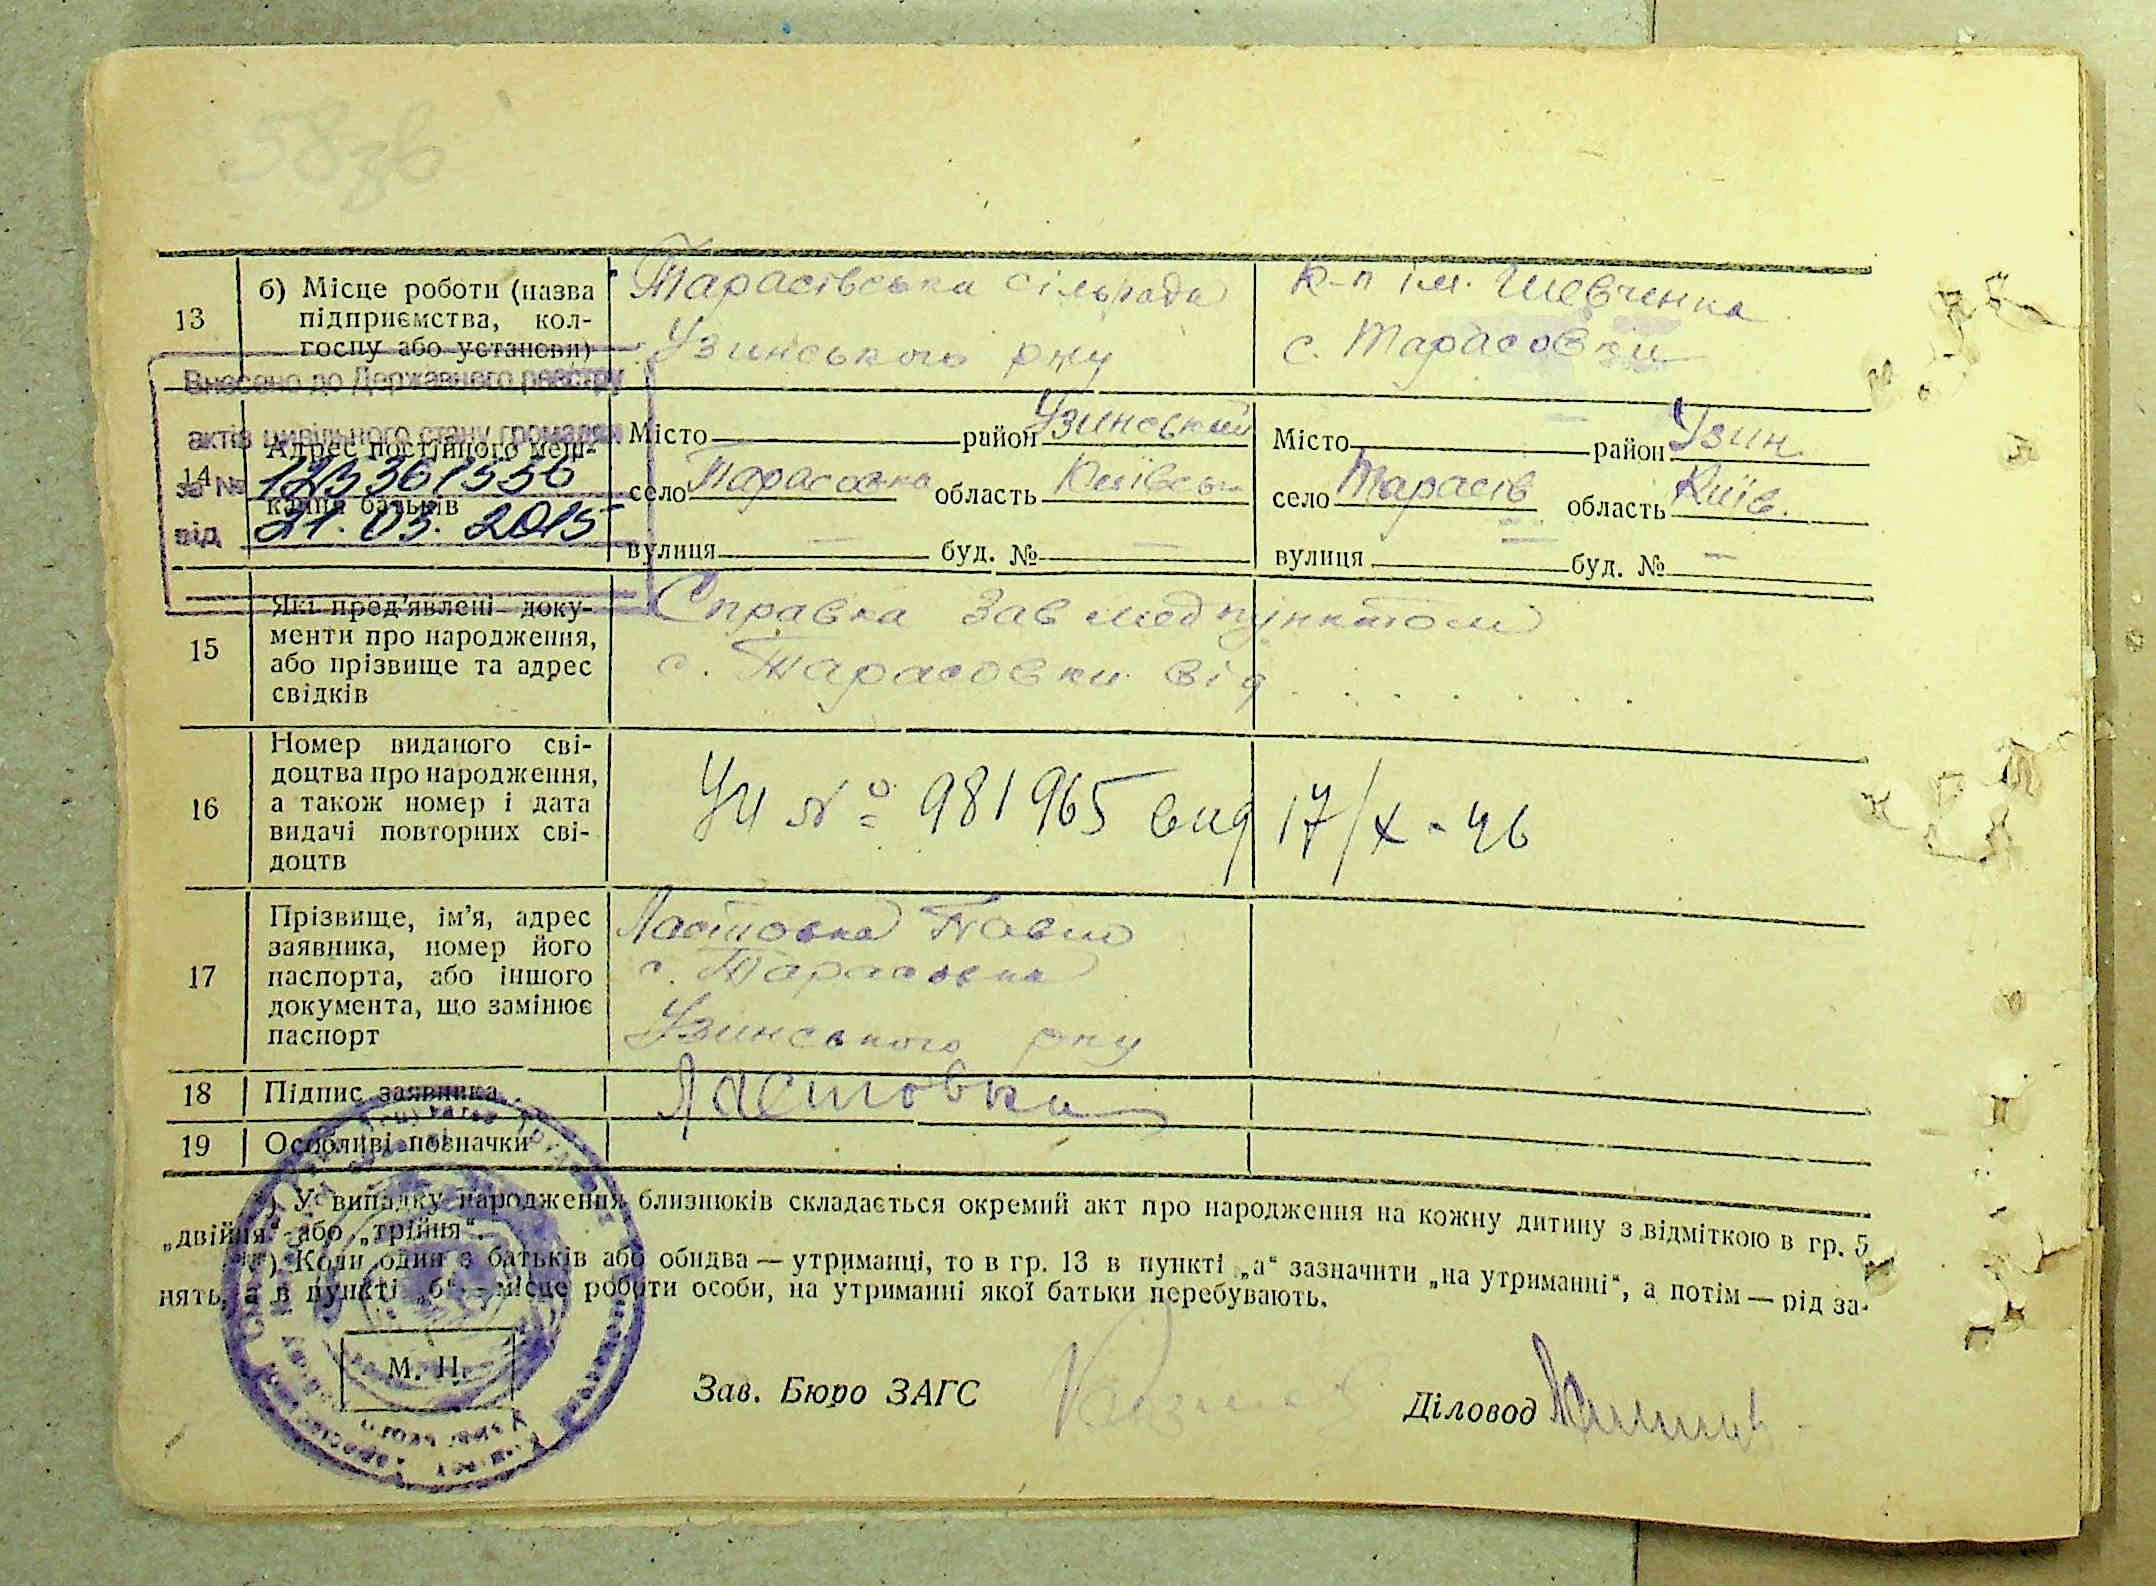 58зв
13
б) Місце роботи (назва
підприємства, кол-
госпу або установи)
Тарасівська сільрада
Узинського рну
к-п ім. Шевченка
с. Тарасовки
Внесено до Державного реєстру
актів цивільного стану громадян
за №
від 21.03.2015
14
Адрес постійного меш-
кання батьків
Місто район Узинський
село Тарасовка область Київськ
вулиця — буд. № —
Місто район Узин.
село Тарасів область Київ.
вулиця буд. № —
15
Які пред'явлені доку-
менти про народження,
або прізвище та адрес
свідків
Справка Зав медпунктом
с. Тарасовки від . . . . . . .
16
Номер виданого сві-
доцтва про народження,
а також номер і дата
видачі повторних сві-
доцтв
УЧ № 981965 вид 17/X-46
17
Прізвище, ім'я, адрес
заявника, номер його
паспорта, або іншого
документа, що замінює
паспорт
Ластовка Павло
с. Тарасовка
Узинського рну
18
Підпис заявника
Ластовка
19
Особливі позначки
*) У випадку народження близнюків складається окремий акт про народження на кожну дитину з відміткою в гр. 5
„двійня“ або „трійня“.
**) Коли один з батьків або обидва — утриманці, то в гр. 13 в пункті „а“ зазначити „на утриманні“, а потім — рід за-
нять, а в пункті „б“ — місце роботи особи, на утриманні якої батьки перебувають.
М. П.
Зав. Бюро ЗАГС
Діловод